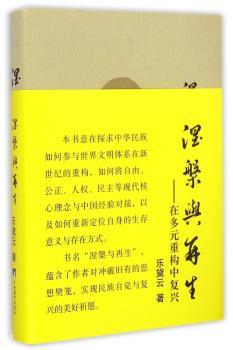 涅
涅槃與再生
乐黛云 著
涅
涅槃與再生
——在多元重构中复兴
乐黛云 著
本书意在探求中华民族
如何参与世界文明体系在新
世纪的重构，如何将自由、
公正、人权、民主等现代核
心理念与中国经验对接，以
及如何重新定位自身的生存
意义与存在方式。
书名“涅槃与再生”，
蕴含了作者对冲破旧有的思
想樊笼，实现民族自觉与复
兴的美好祈愿。